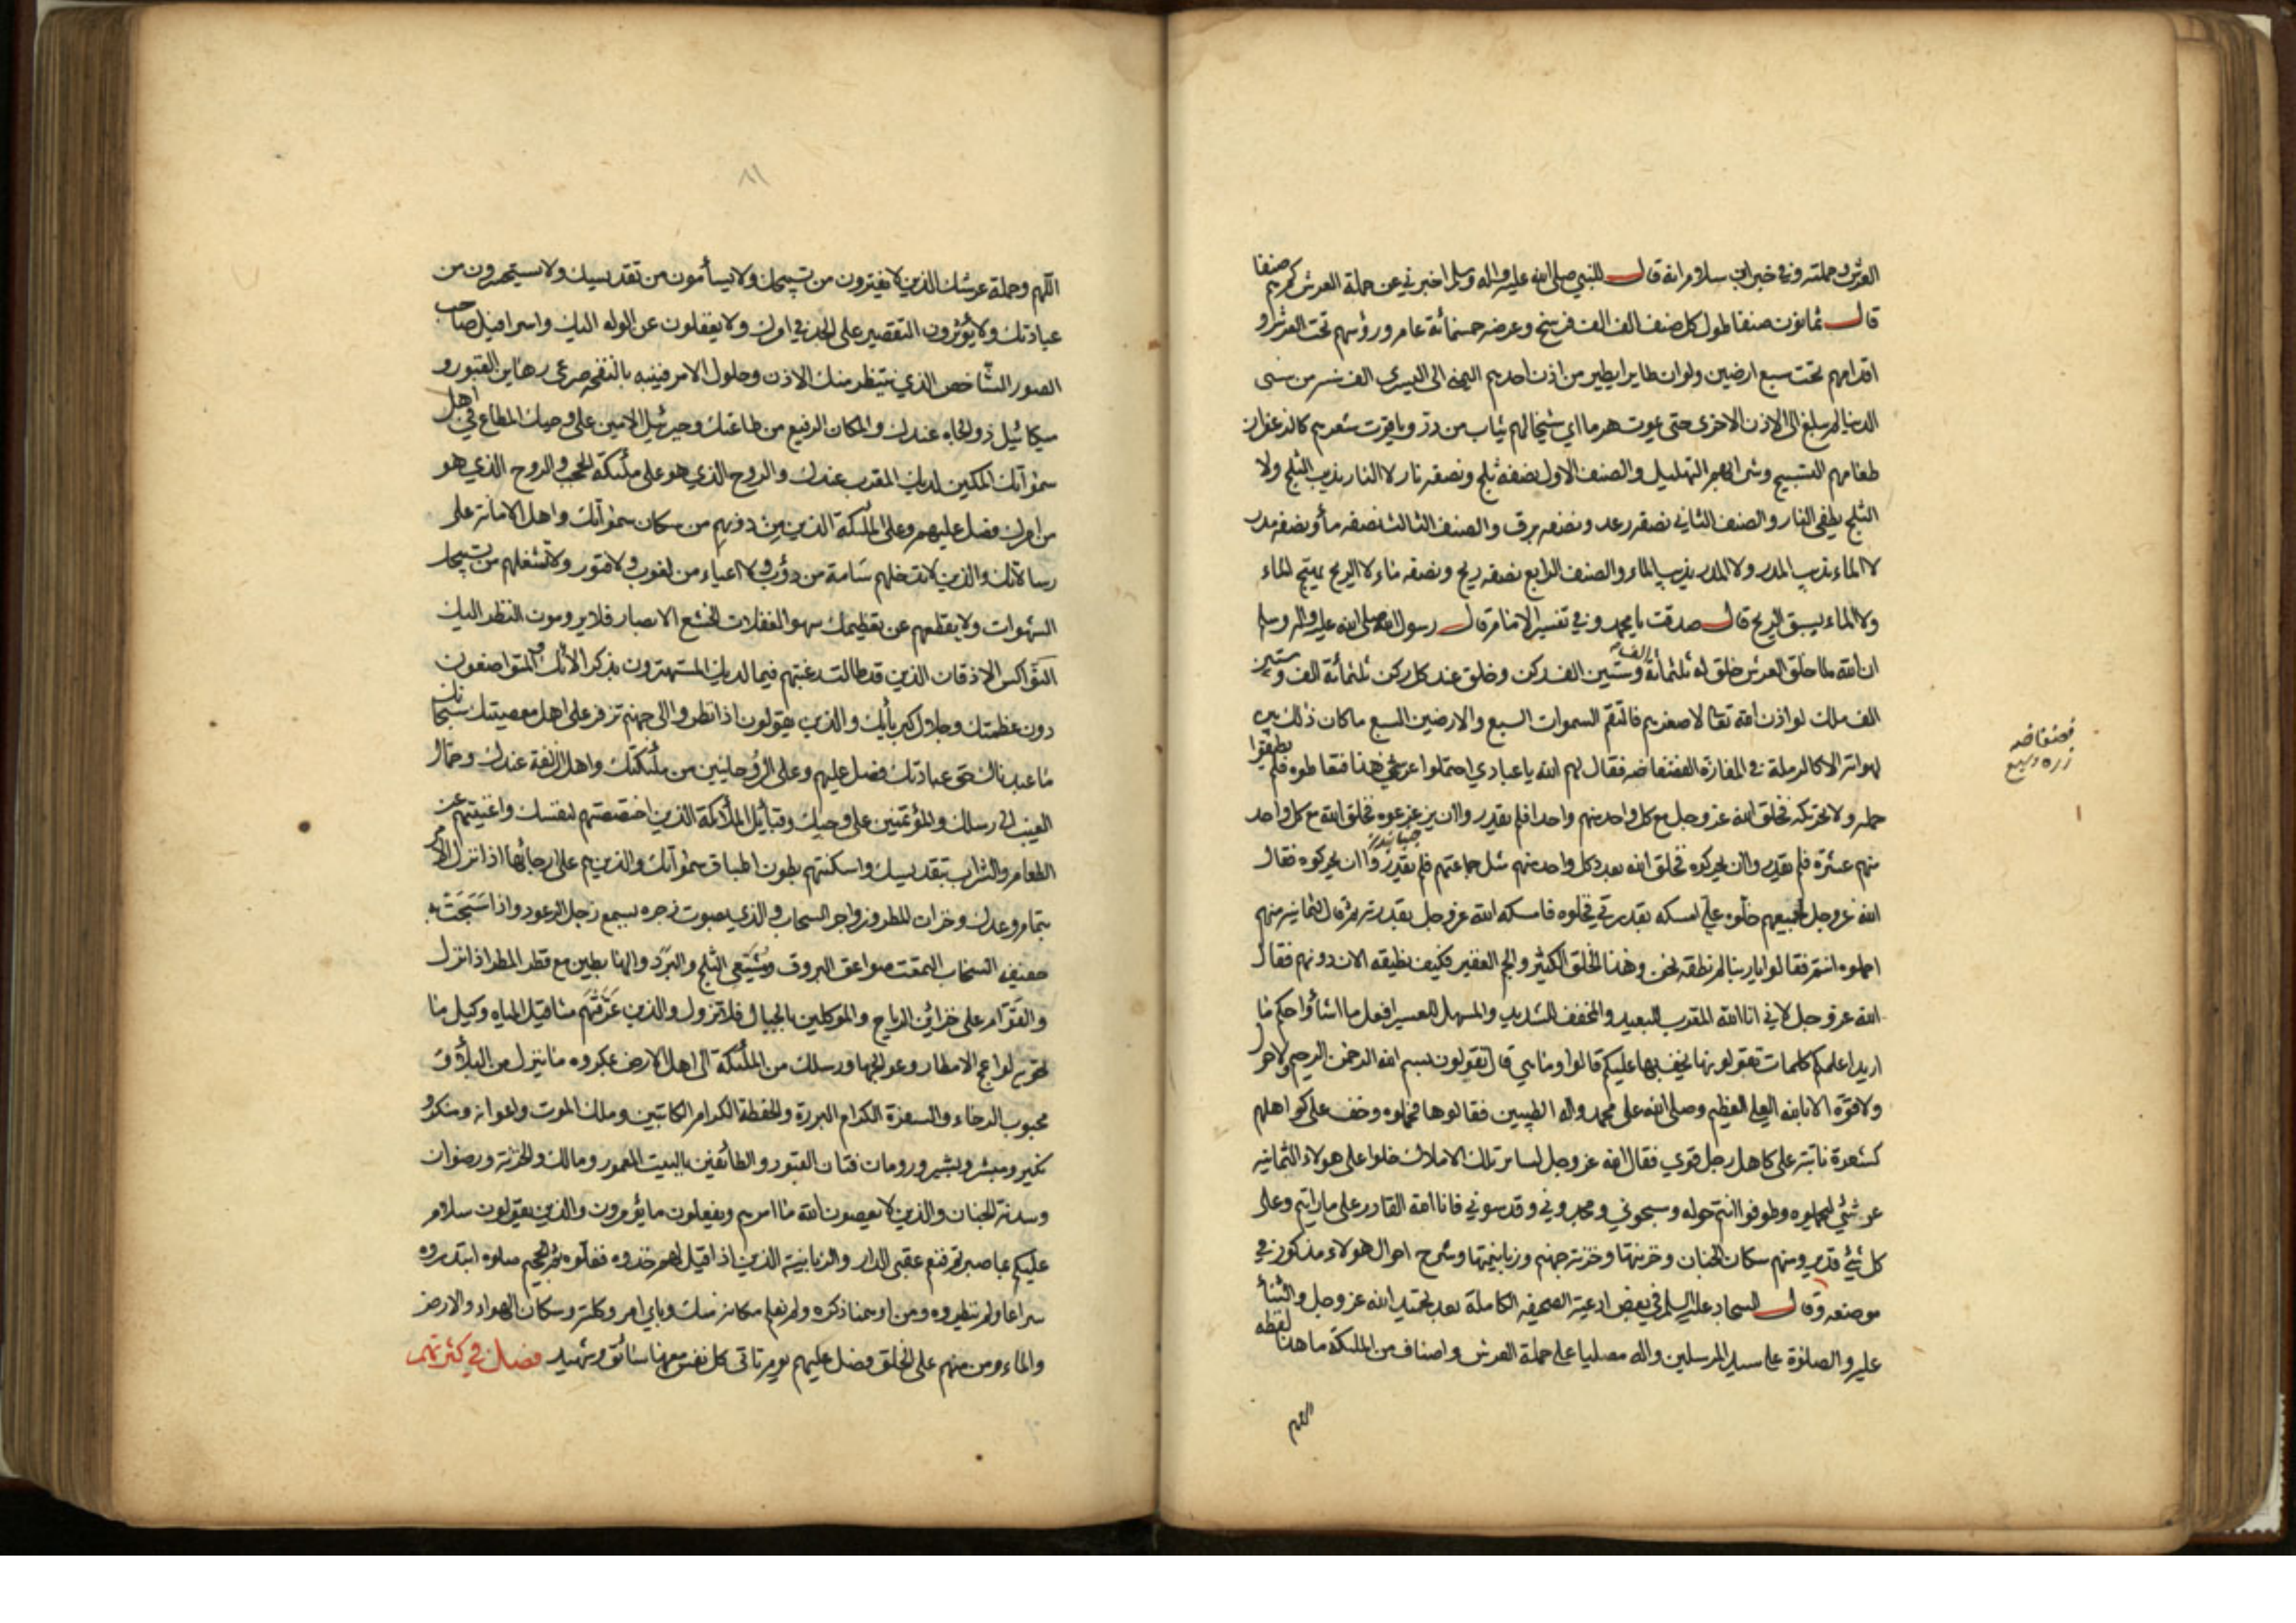 العرش وحملته وفي خبر ابن سلام انه قال للنبي صلى الله عليه واله وسلم اخبرني عن حملة العرش كم هم صنفا
قال ثمانون صنفا طول كل صنف الف الف فرسخ وعرضه خمسمائة عام ورؤسهم تحت العرش و
اقدامهم تحت سبع ارضين ولو ان طايرا يطير من اذن احدهم اليمنى الى اليسرى الف سنة من سني
الدنيا لم يبلغ الى الاذن الاخرى حتى يموت هرما اي شيخا لهم ثياب من در وياقوت شعرهم كالزعفران
طعامهم التسبيح وشرابهم التهليل والصنف الاول نصفه ثلج ونصفه نار لا النار يذيب الثلج ولا
الثلج يطفي النار والصنف الثاني نصفه رعد ونصفه برق والصنف الثالث نصفه ماء ونصفه مدر
لا الماء يذيب المدر ولا المدر يذيب الماء والصنف الرابع نصفه ريح ونصفه ماء لا الريح يهيج الماء
ولا الماء يسبق الريح قال صدقت يا محمد وفي تفسير الامام قال رسول الله صلى الله عليه واله وسلم
ان الله لما خلق العرش خلق له ثلثمائة وستين الف ركن وخلق عند كل ركن ثلثمائة الف وستين
الف ملك لو اذن الله تعالى لاصغرهم فالتقم السموات السبع والارضين السبع ما كان ذلك بين
لهواته الا كالرملة في المفازة الفضفاضه فقال لهم الله يا عبادي احتملوا عرشي هذا فتعاطوه فلم يطيقوا
حمله ولا تحريكه فخلق الله عز وجل مع كل واحد منهم واحدا فلم يقدروا ان يزعزعوه فخلق الله مع كل واحد
منهم عشرة فلم يقدروا ان يحركوه فخلق الله بعدد كل واحد منهم مثل جماعتهم فلم يقدروا ان يحركوه فقال
الله عز وجل لجميعهم خلوه علي امسكه بقدرتي فخلوه فامسكه الله عز وجل بقدرته ثم قال لثمانية منهم
احملوه انتم فقالوا يا ربنا لم نطقه نحن وهذا الخلق الكثير والجم الغفير فكيف نطيقه الان دونهم فقال
الله عز وجل لاني انا الله المقرب للبعيد والمخفف للشديد والمسهل للعسير افعل ما اشاء واحكم ما
اريد اعلمكم كلمات تقولونها يخف بها عليكم قالوا وما هي قال تقولون بسم الله الرحمن الرحيم ولا حول
ولا قوة الا بالله العلي العظيم وصلى الله على محمد واله الطيبين فقالوها فحملوه وخف على كواهلهم
كشعرة نابتة على كاهل رجل قوي فقال الله عز وجل لسائر تلك الاملاك خلوا على هولاء الثمانية
عرشي ليحملوه وطوفوا انتم حوله وسبحوني ومجدوني وقدسوني فانا الله القادر على ما رايتم وعلى
كل شيء قدير ومنهم سكان الجنان وخزنتها وخزنة جهنم وزبانيتها وشرح احوال هولاء مذكور في
موضعه وقال السجاد عليه السلم في بعض ادعية الصحيفه الكاملة بعد تحميد الله عز وجل والثناء
عليه والصلوة على سيد المرسلين واله مصليا على حملة العرش واصناف من الملئكة ما هذا لفظه
اللهم
فضفاضه
اللهم وحملة عرشك الذين لا يفترون من تسبيحك ولا يسأمون من تقديسك ولا يستحسرون من
عبادتك ولا يؤثرون التقصير على الجد في امرك ولا يغفلون عن الوله اليك واسرافيل صاحب
الصور الشاخص الذي ينتظر منك الاذن وحلول الامر فينبه بالنفخة صرعى رهاين القبور و
ميكائيل ذو الجاه عندك والمكان الرفيع من طاعتك وجبرئيل الامين على وحيك المطاع في اهل
سمواتك المكين لديك المقرب عندك والروح الذي هو على ملئكة الحجب والروح الذي هو
من امرك فصل عليهم وعلى الملئكة الذين من دونهم من سكان سمواتك واهل الامانة على
رسالاتك والذين لا تدخلهم سأمة من دؤب ولا اعياء من لغوب ولا فتور ولا تشغلهم من تسبيحك
الشهوات ولا يقطعهم عن تعظيمك سهو الغفلات الخشع الابصار فلا يرومون النظر اليك
النواكس الاذقان الذين قد طالت رغبتهم فيما لديك المستهترون بذكر الائك والمتواضعون
دون عظمتك وجلال كبريائك والذين يقولون اذا نظروا الى جهنم تزفر على اهل معصيتك سبحانك
ما عبدناك حق عبادتك فصل عليهم وعلى الروحانيين من ملئكتك واهل الزلفة عندك وحمال
الغيب الى رسلك والمؤتمنين على وحيك وقبائل الملائكة الذين اختصصتهم لنفسك واغنيتهم عن
الطعام والشراب بتقديسك واسكنتهم بطون اطباق سمواتك والذين هم على ارجائها اذا نزل الامر
بتمام وعدك وخزان المطر وزواجر السحاب والذي بصوت زجره يسمع زجل الرعود واذا سبحت به
حفيفة السحاب التمعت صواعق البروق ومشيعي الثلج والبرد والهابطين مع قطر المطر اذا نزل
والقوام على خزائن الرياح والموكلين بالجبال فلا تزول والذين عرفتهم مثاقيل المياه وكيل ما
تحويه لواعج الامطار وعوالجها ورسلك من الملئكة الى اهل الارض بمكروه ما ينزل من البلاء و
محبوب الرخاء والسفرة الكرام البررة والحفظة الكرام الكاتبين وملك الموت واعوانه ومنكر و
نكير ومبشر وبشير ورومان فتان القبور والطائفين بالبيت المعمور ومالك والخزنة ورضوان
وسدنة الجنان والذين لا يعصون الله ما امرهم ويفعلون ما يؤمرون والذين يقولون سلام
عليكم بما صبرتم فنعم عقبى الدار والزبانية الذين اذا قيل لهم خذوه فغلوه ثم الجحيم صلوه ابتدروه
سراعا ولم ينظروه ومن اوهمنا ذكره ولم نعلم مكانه منك وباي امر وكلته وسكان الهواء والارض
والماء ومن منهم على الخلق فصل عليهم يوم تاتي كل نفس معها سائق وشهيد فصل في كثرتهم